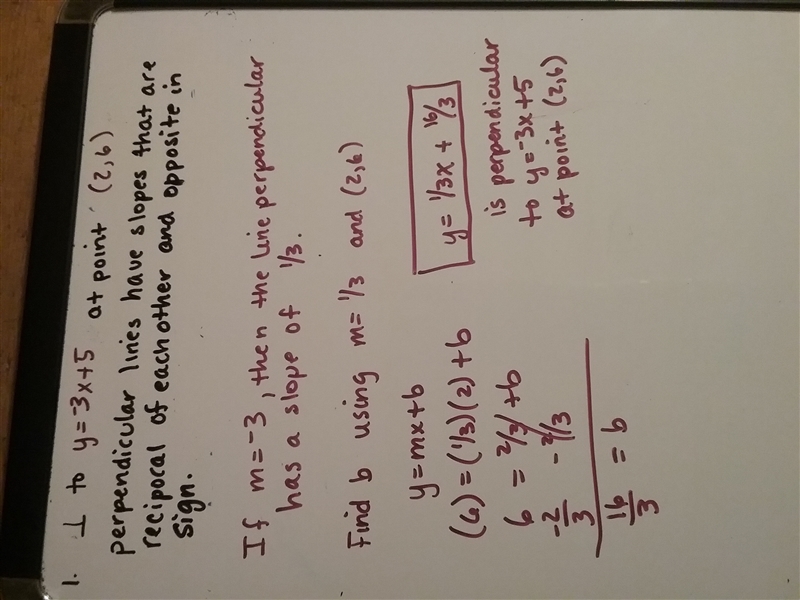 1. ⊥ to y=-3x+5 at point (2,6)
perpendicular lines have slopes that are
reciprocal of each other and opposite in
sign.
If m=-3, then the line perpendicular
has a slope of 1/3.
Find b using m=1/3 and (2,6)
y=mx+b
(6)=(1/3)(2)+b
6 = 2/3 +b
-2/3 -2/3
16/3 = b
y= 1/3x + 16/3
is perpendicular
to y=-3x+5
at point (2,6)